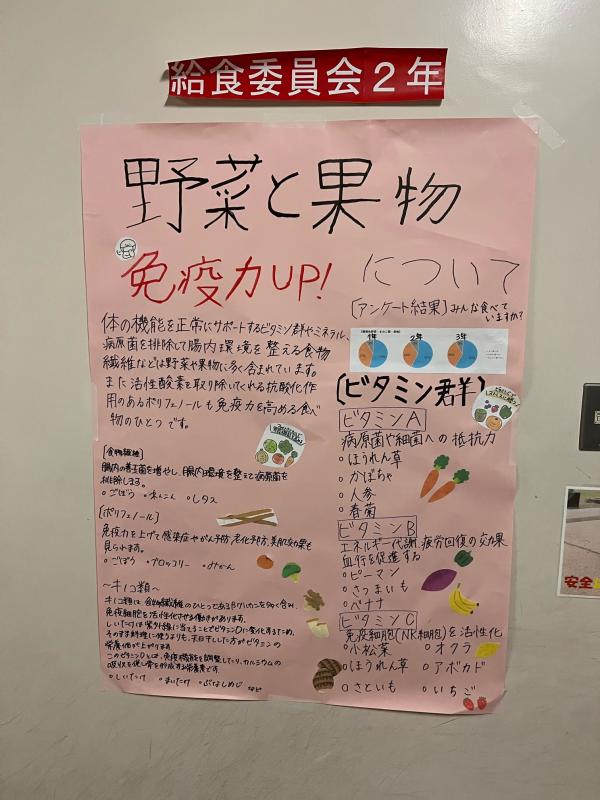 給食委員会2年
野菜と果物
について
免疫力UP!
体の機能を正常にサポートするビタミン群やミネラル、
病原菌を排除して腸内環境を整える食物
繊維などは野菜や果物に多く含まれています。
また活性酸素を取り除いてくれる抗酸化作
用のあるポリフェノールも免疫力を高める食べ
物のひとつです。
[食物繊維]
腸内の善玉菌を増やし、腸内環境を整えて病原菌を
排除します。
○ごぼう ○れんこん ○レタス
[ポリフェノール]
免疫力を上げて感染症やがん予防、老化予防、美肌効果も
見られます。
○ごぼう ○ブロッコリー ○みかん
~キノコ類~
キノコ類は、食物繊維のひとつであるβグルカンを多く含み、
免疫細胞を活性化させる働きがあります。
しいたけは紫外線に当てることでビタミンDに変化するため、
そのまま料理に使うよりも、天日干しした方がビタミンの
栄養価が上がります。
このビタミンDとは、免疫機能を調整したり、カルシウムの
吸収を促し骨を形成する栄養素です。
○しいたけ ○まいたけ ○ぶなしめじ など
[アンケート結果]みんな食べて
いますか?
1年 2年 3年
[ビタミン群]
ビタミンA
病原菌や細菌への抵抗力
○ほうれん草
○かぼちゃ
○人参
○春菊
ビタミンB
エネルギー代謝、疲労回復の効果
血行を促進する
○ピーマン
○さつまいも
○バナナ
ビタミンC
免疫細胞(NK細胞)を活性化
○小松菜 ○オクラ
○ほうれん草 ○アボカド
○さといも ○いちご
安全